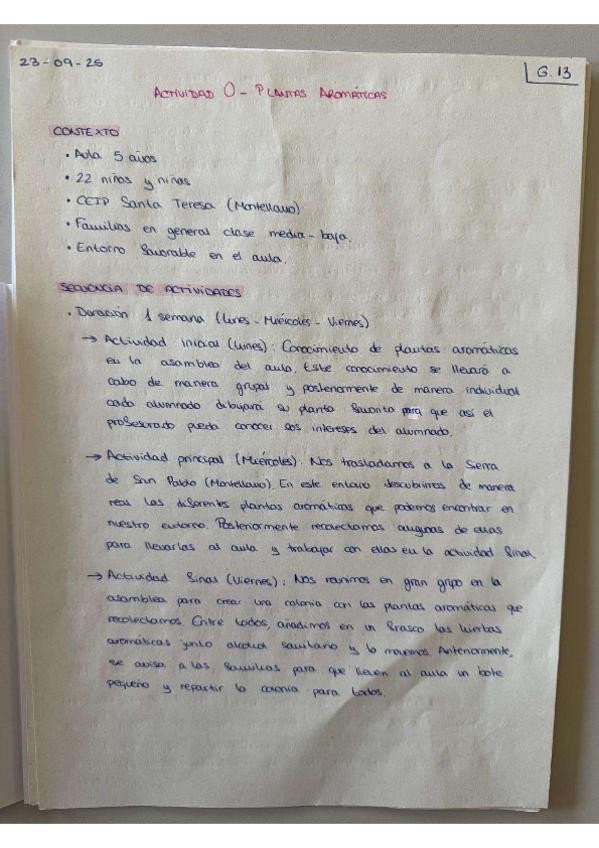 23-09-25
G.13
ACTIVIDAD 0 - PLANTAS AROMÁTICAS
CONTEXTO
• Aula 5 años
• 22 niños y niñas
• CEIP Santa Teresa (Montellano)
• Familias en general clase media-baja.
• Entorno favorable en el aula.
SECUENCIA DE ACTIVIDADES
• Duración 1 semana (Lunes - Miércoles - Viernes)
→ Actividad inicial (Lunes): Conocimiento de plantas aromáticas
en la asamblea del aula. Este conocimiento se llevará a
cabo de manera grupal y posteriormente de manera individual
cada alumnado dibujará su planta favorita para que así el
profesorado pueda conocer sos intereses del alumnado.
→ Actividad principal (Miércoles): Nos trasladamos a la Sierra
de San Pablo (Montellano). En este entorno descubrimos de manera
real las diferentes plantas aromáticas que podemos encontrar en
nuestro entorno. Posteriormente recolectamos algunas de ellas
para llevarlas al aula y trabajar con ellas en la actividad final.
→ Actividad final (Viernes): Nos reunimos en gran grupo en la
asamblea para crear una colonia con las plantas aromáticas que
recolectamos. Entre todos, añadimos en un frasco las hierbas
aromáticas junto alcohol sanitario y lo movemos. Anteriormente,
se avisa a las familias para que lleven al aula un bote
pequeño y repartir la colonia para todos.